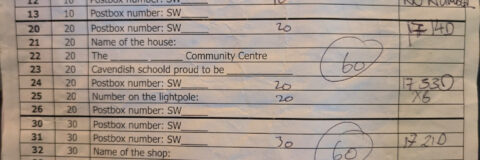 12 10 Postbox number: SW 10 No Number
13 10 Postbox number: SW
20 20 Postbox number: SW 20 17 140
21 20 Name of the house:
22 20 The Community Centre 60
23 20 Cavendish schoold proud to be
24 20 Postbox number: SW 20 17 530
25 20 Number on the lightpole: 20 X6
26 20 Postbox number: SW
30 30 Postbox number: SW
31 30 Postbox number: SW 30 17 210
32 30 Name of the shop: 60